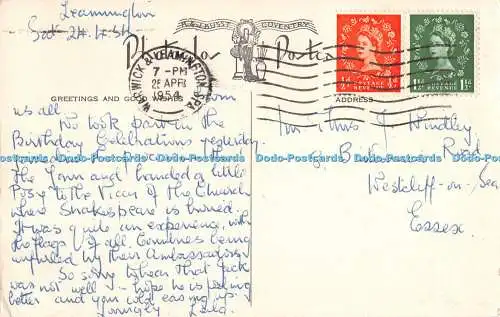 Leamington
Sat 24.4.54
J. & J. KUSST COVENTRY
Photo Postie
WARWICK & LEAMINGTON SPA
7 - PM
25 APR
1954
POSTAGE REVENUE
½d ½d
POSTAGE REVENUE
1½d 1½d
GREETINGS AND GOOD WISHES from
ADDRESS
us all
We took part in the
Birthday Celebrations yesterday
the Town and handed a little
Posy to the Vicar of the Church
where Shakespeare is buried.
It was quite an experience, with
the flags of all Countries being
unfurled by their Ambassadors
So sorry to hear that Jack
was not well - hope he is feeling
better and your cold easing up.
Mr & Mrs J Windley
Rd
Westcliff-on-Sea
Essex
Dodo-Postcards Dodo-Postcards Dodo-Postcards Dodo-Postcards Dodo-Postcards Dodo-Postcards